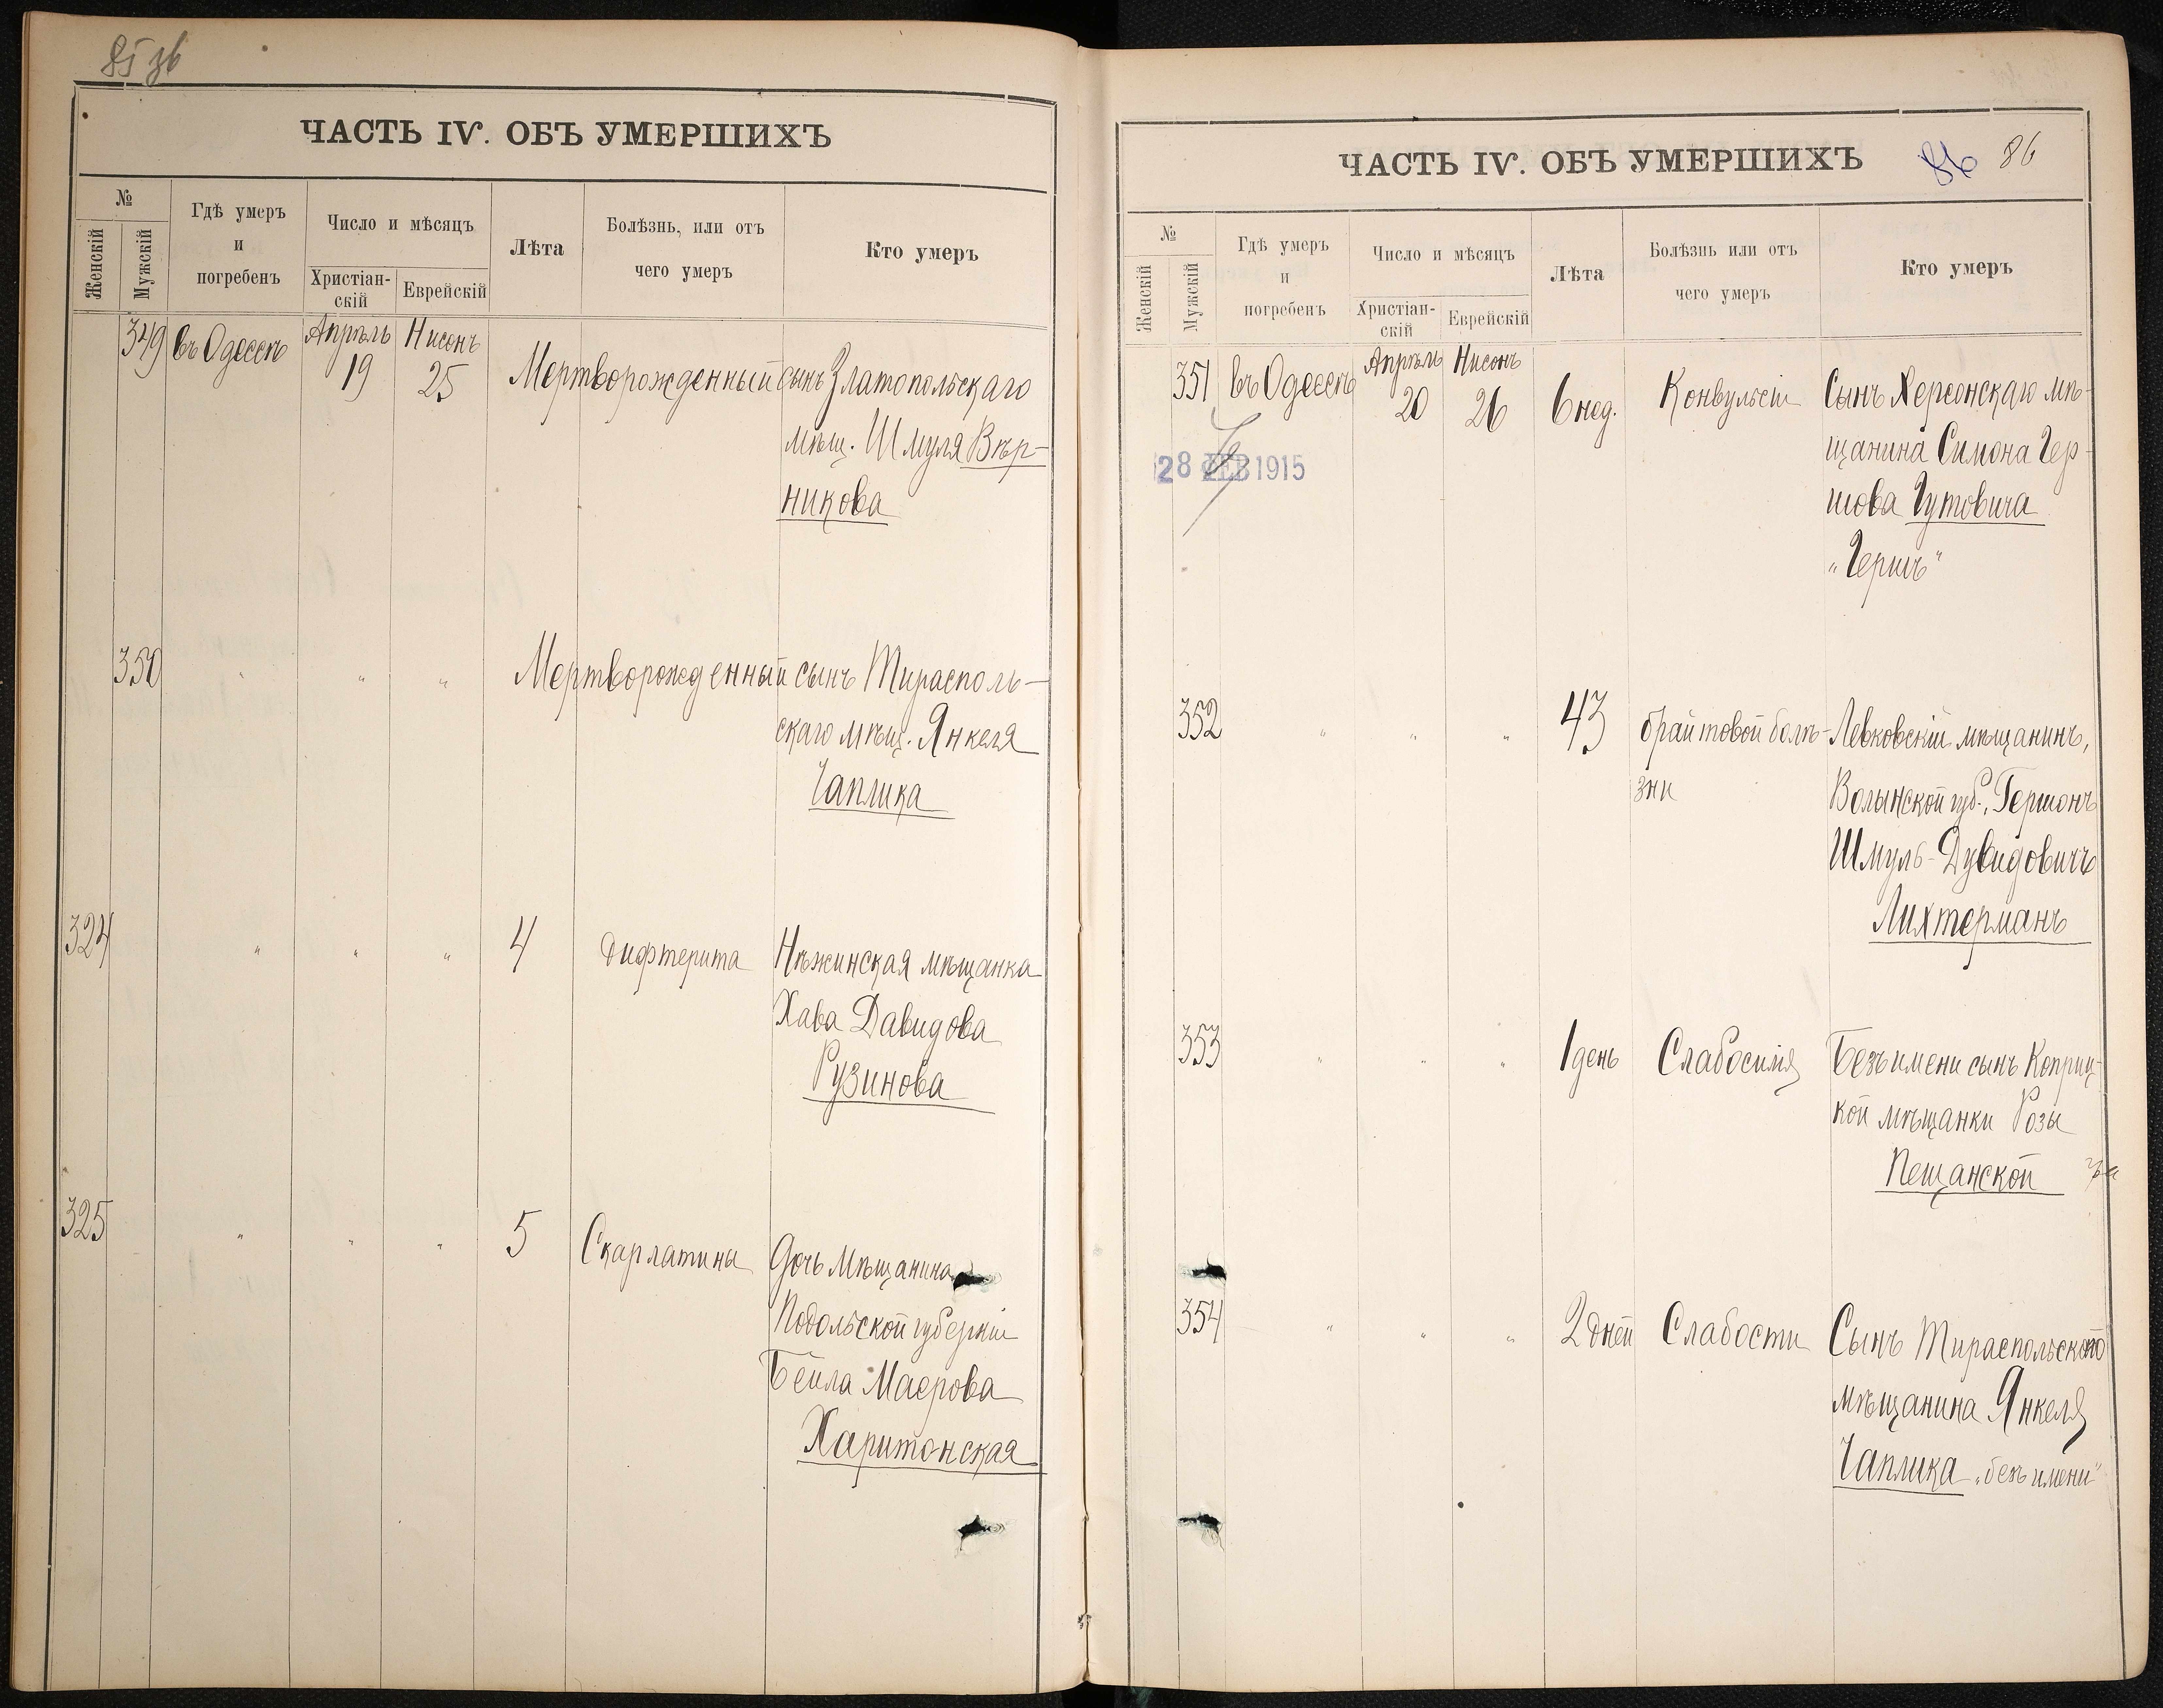 85 зв
ЧАСТЬ IV. ОБЪ УМЕРШИХЪ
№
Женскій
Мужскій
Гдѣ умеръ
и
погребенъ
Число и мѣсяцъ
Христіан-
скій
Еврейскій
Лѣта
Болѣзнь, или отъ
чего умеръ
Кто умеръ
349 въ Одессѣ Апрѣль Нисонъ
19 25 Мертворожденный сынъ Златопольскаго
мѣщ. Шмуля Вѣр-
никова
350 " " " Мертворожденный сынъ Тирасполь-
скаго мѣщ. Янкеля
Чаплика
324 " " " 4 Дифтерита Нѣжинская мѣщанка
Хава Давидова
Рузинова
325 " " " 5 Скарлатины Дочь мѣщанина
Подольской губерніи
Бейла Маерова
Харитонская
ЧАСТЬ IV. ОБЪ УМЕРШИХЪ 86 86
№
Женскій
Мужскій
Гдѣ умеръ
и
погребенъ
Число и мѣсяцъ
Христіан-
скій
Еврейскій
Лѣта
Болѣзнь или отъ
чего умеръ
Кто умеръ
351 въ Одессѣ Апрѣль Нисонъ
20 26 6 нед. Конвульсіи Сынъ Херсонскаго мѣ-
щанина Симона Гер-
шова Гутовича
„Гершъ"
28 ФЕВ 1915
352 " " " 43 брайтовой болѣ- Левковскій мѣщанинъ,
зни Волынской губ., Гершонъ
Шмуль-Дувидовичъ
Лихтерманъ
353 " " " 1 день Слабосилія Безъ имени сынъ Коприц-
кой мѣщанки Розы
Пещанской
354 " " " 2 дней Слабости Сынъ Тираспольского
мѣщанина Янкеля
Чаплика „безъ имени"